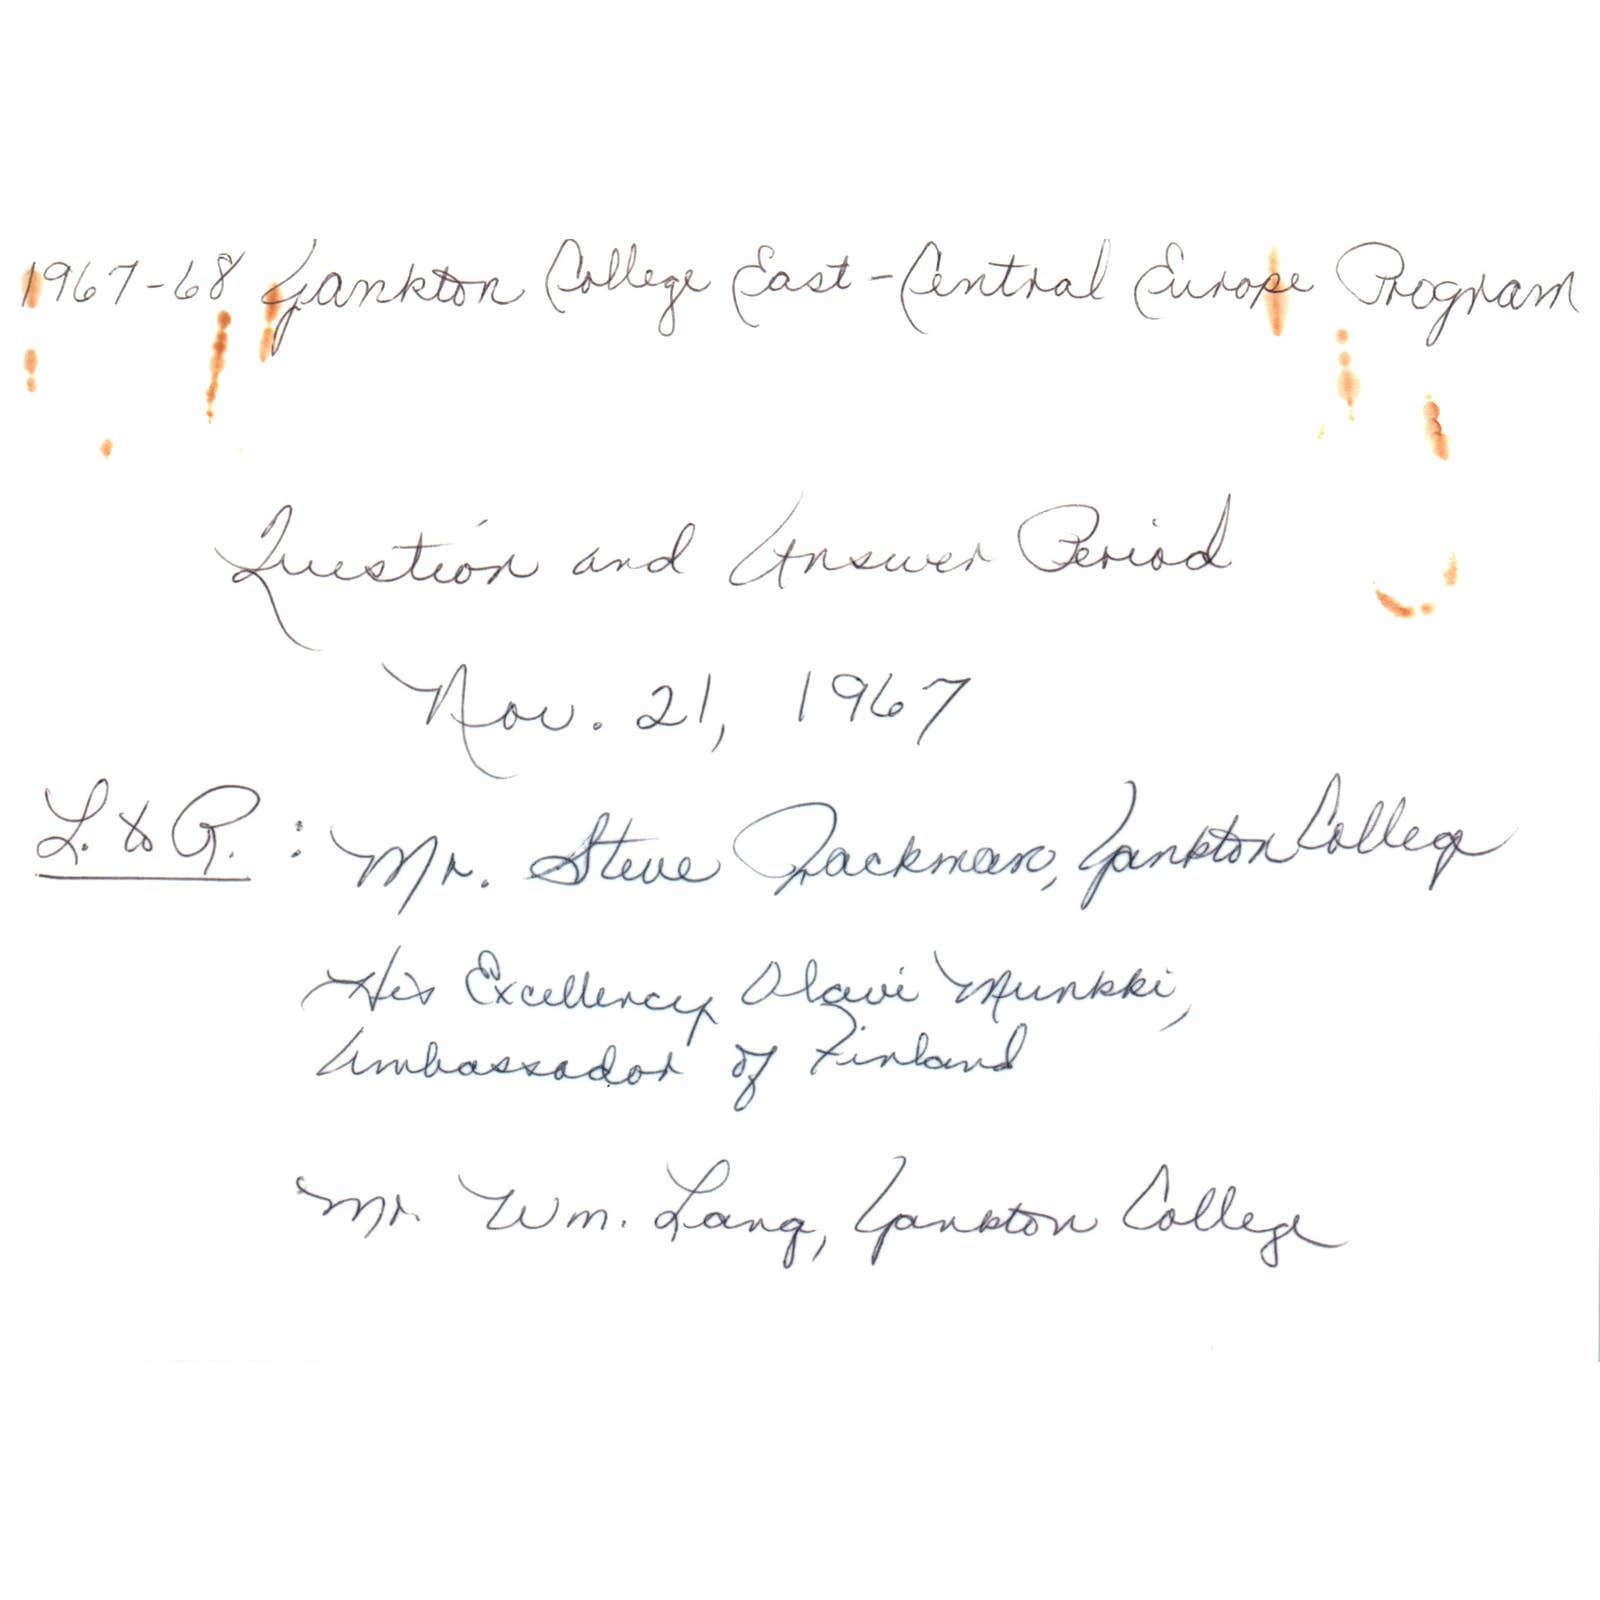 1967-68 Yankton College East-Central Europe Program
Question and Answer Period
Nov. 21, 1967
L. to R. : Mr. Steve Zackman, Yankton College
His Excellency Olavi Munkki,
Ambassador of Finland
Mr. Wm. Lang, Yankton College